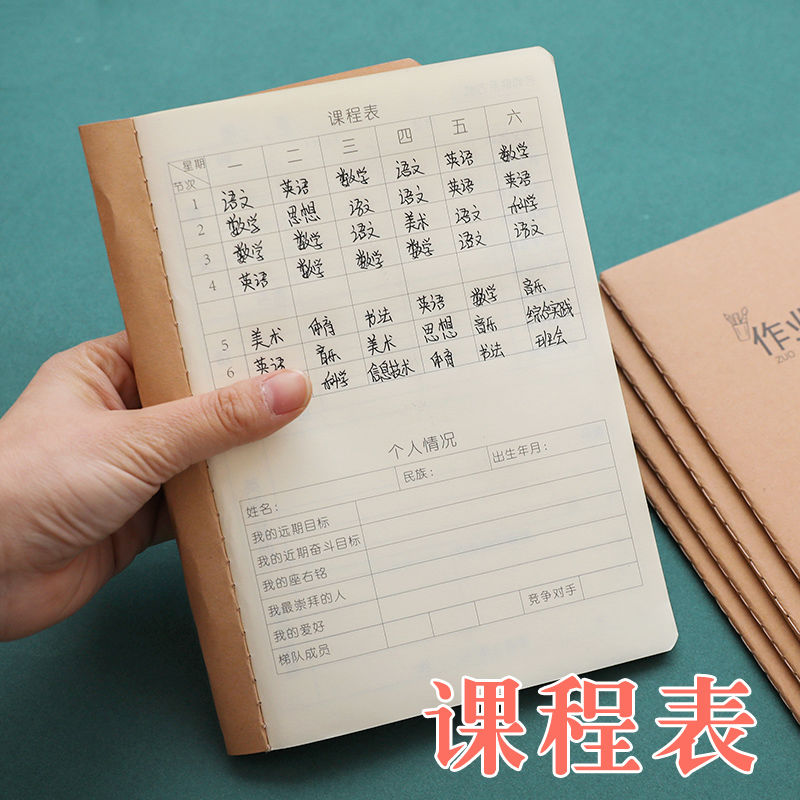 课程表
星期 一 二 三 四 五 六
节次
1 语文 英语 数学 语文 英语 数学
2 数学 思想 语文 语文 英语 英语
3 数学 数学 语文 美术 语文 科学
4 英语 数学 数学 数学 语文 语文
5 美术 体育 书法 英语 数学 音乐
6 英语 音乐 美术 思想 音乐 综合实践
科学 信息技术 体育 书法 班会
个人情况
姓名： 民族： 出生年月：
我的远期目标
我的近期奋斗目标
我的座右铭
我最崇拜的人
我的爱好 竞争对手
梯队成员
作业
zuo
课程表